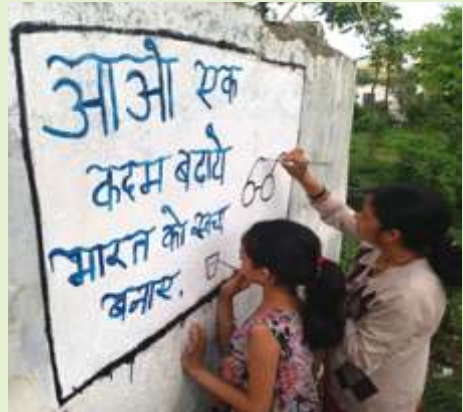 आओ एक
कदम बढाये
भारत को स्वच्छ
बनाए.